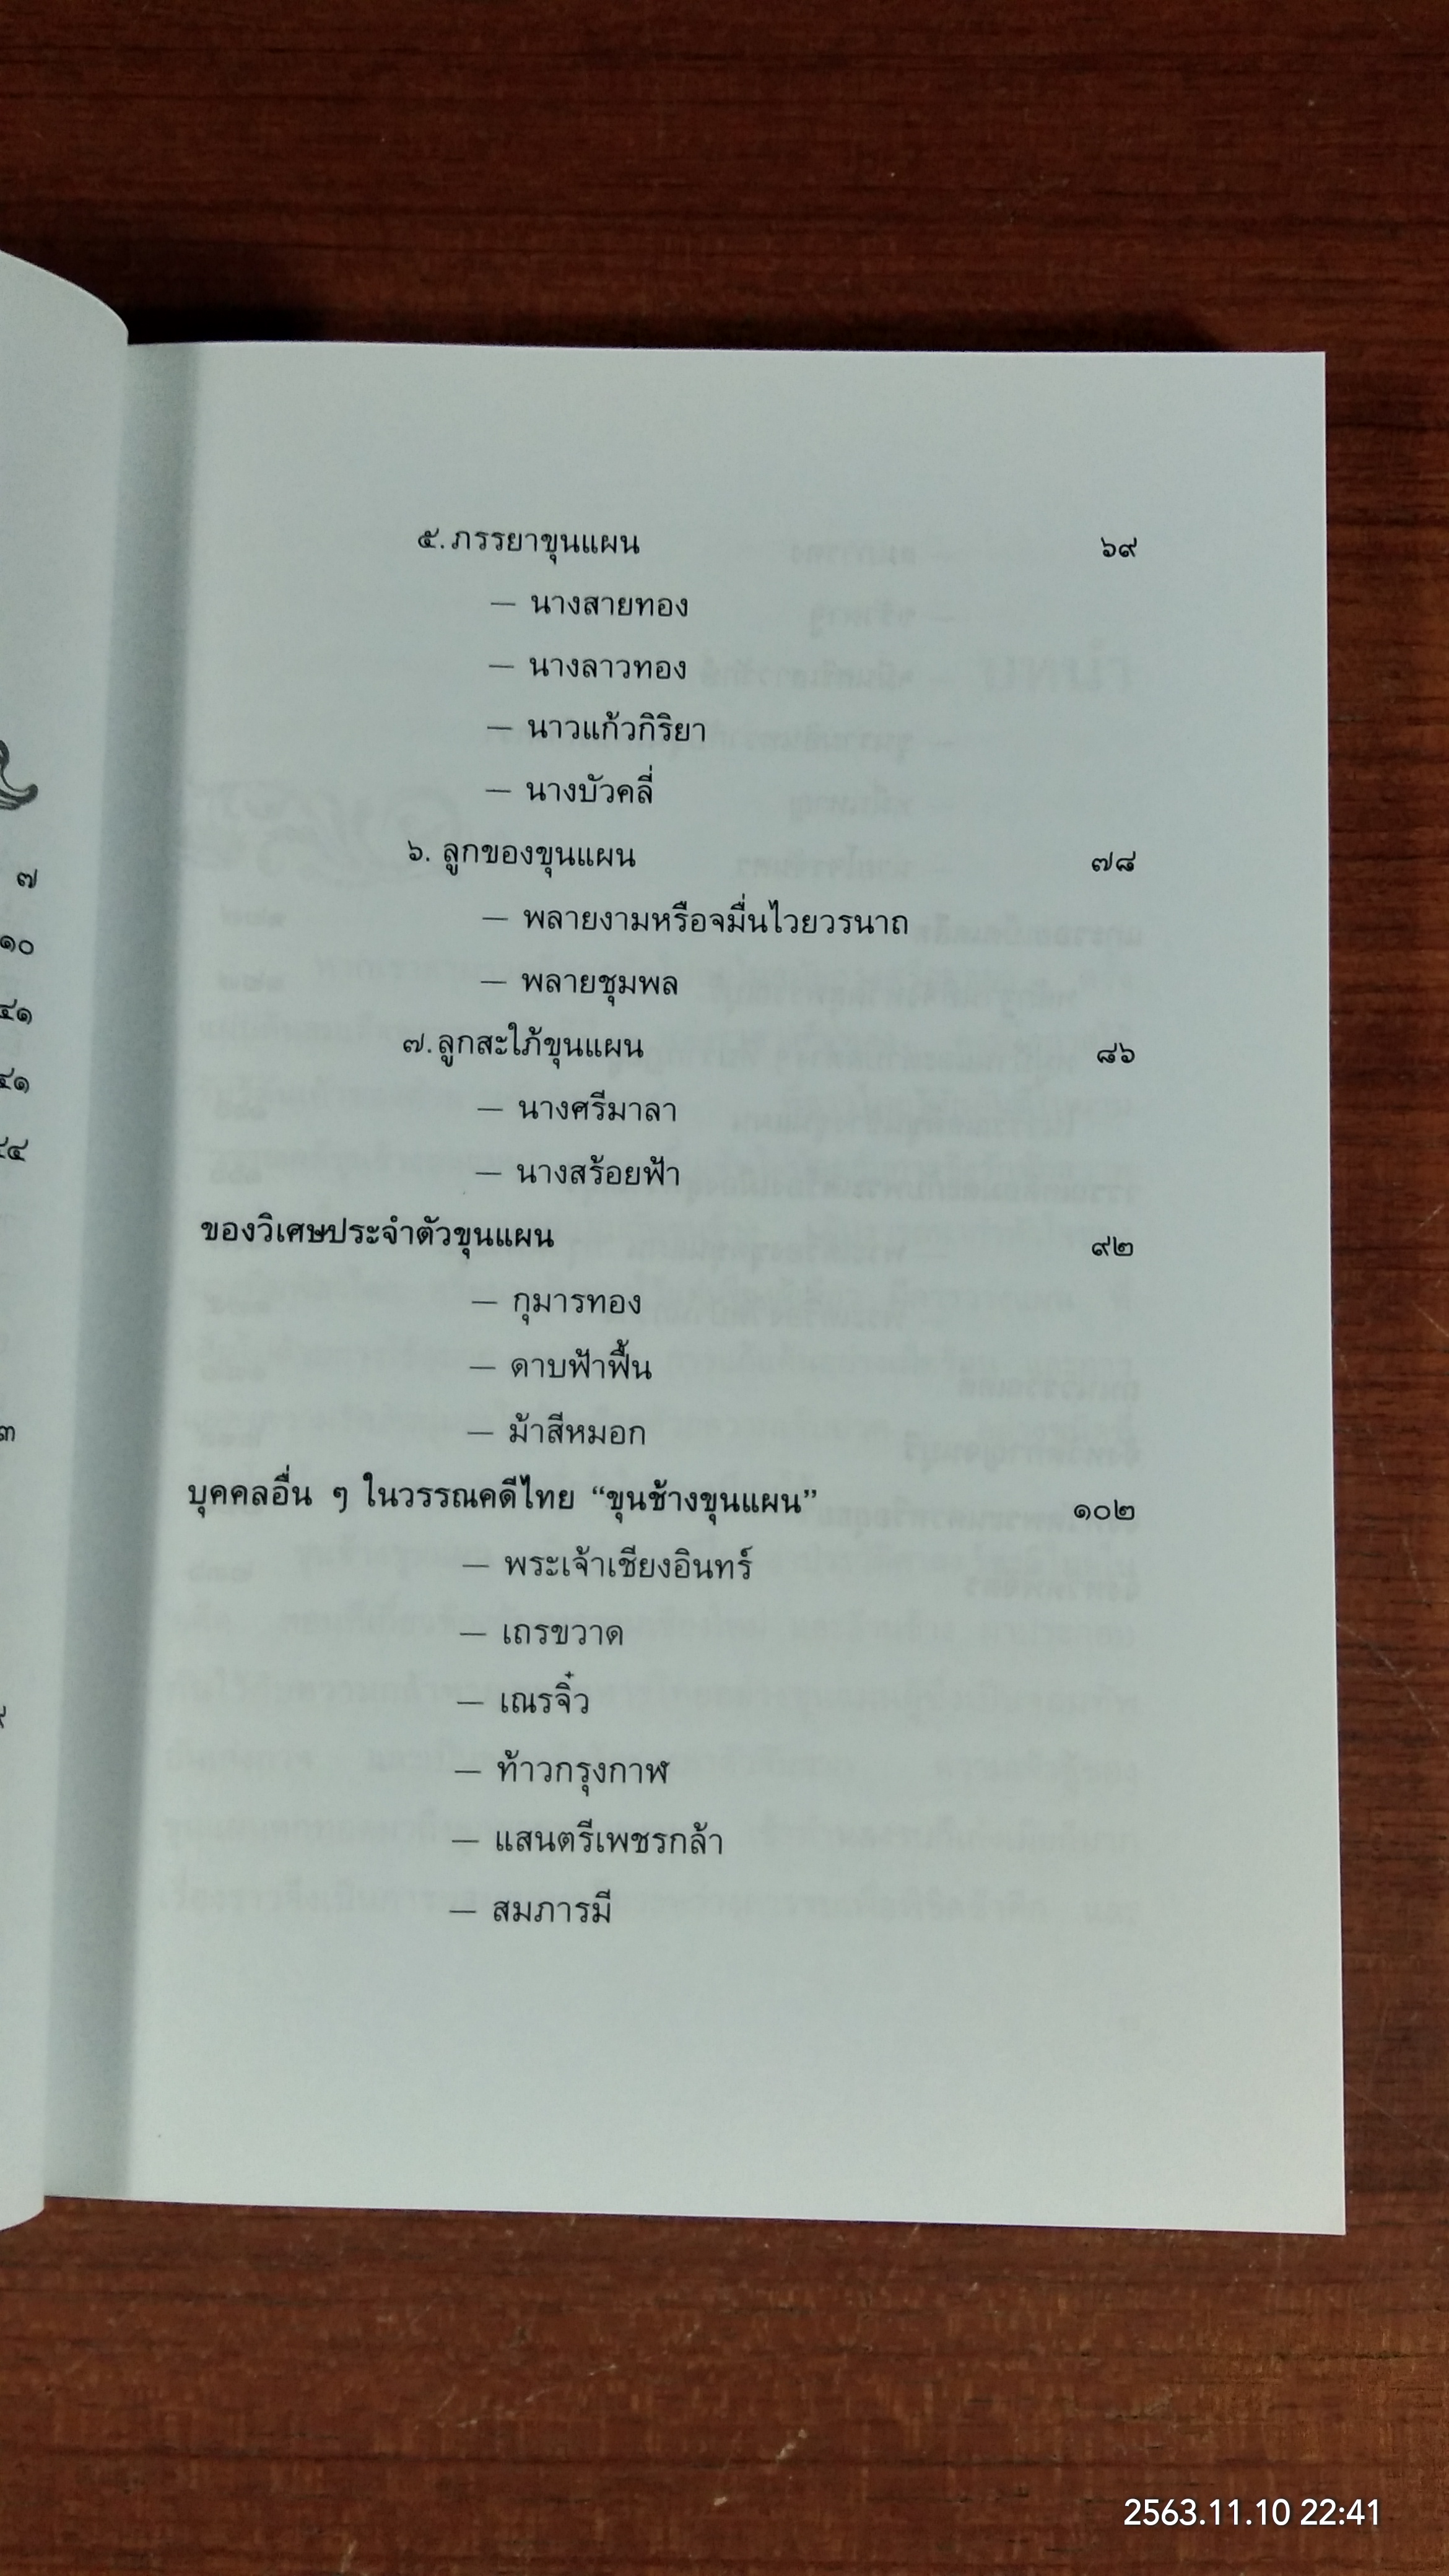 ๕. ภรรยาขุนแผน ๖๙
— นางสายทอง
— นางลาวทอง
— นาวแก้วกิริยา
— นางบัวคลี่
๖. ลูกของขุนแผน ๗๘
— พลายงามหรือจมื่นไวยวรนาถ
— พลายชุมพล
๗. ลูกสะใภ้ขุนแผน ๘๖
— นางศรีมาลา
— นางสร้อยฟ้า
ของวิเศษประจำตัวขุนแผน ๙๒
— กุมารทอง
— ดาบฟ้าฟื้น
— ม้าสีหมอก
บุคคลอื่น ๆ ในวรรณคดีไทย “ขุนช้างขุนแผน” ๑๐๒
— พระเจ้าเชียงอินทร์
— เถรขวาด
— เณรจิ๋ว
— ท้าวกรุงกาฬ
— แสนตรีเพชรกล้า
— สมภารมี
๗
๑๐
๔๑
๔๑
2563.11.10 22:41